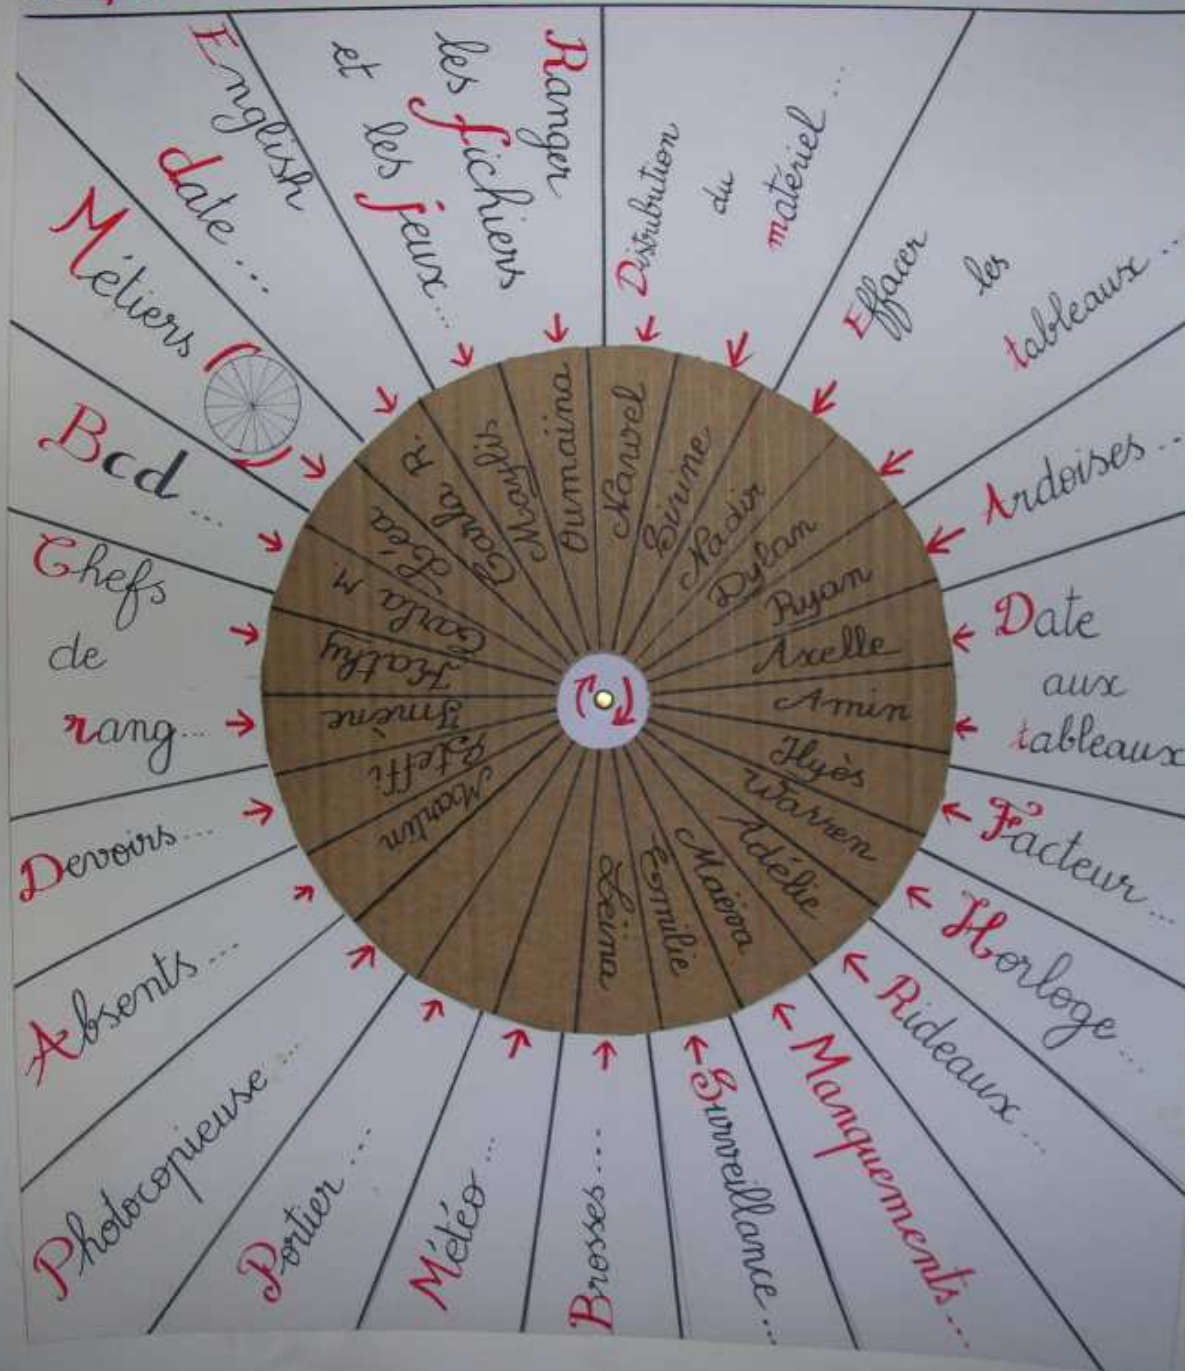 Ranger
les fichiers
et les jeux...
Distribution
du
matériel...
Effacer
les
tableaux...
Ardoises...
Date
aux
tableaux
Facteur...
Horloge...
Rideaux...
Manquements...
Surveillance...
Brosses...
Météo...
Portier...
Photocopieuse...
Absents...
Devoirs...
Chefs
de
rang...
Bcd...
Métiers
English
date...
Oumaïna
Narvel
Sirine
Nadir
Dylan
Ryan
Axelle
Amin
Ilyès
Warren
Adélie
Maëva
Emilie
Leïna
Martin
Steffi
Imène
Kathy
Carla M.
Léa
Carla R.
Maylis